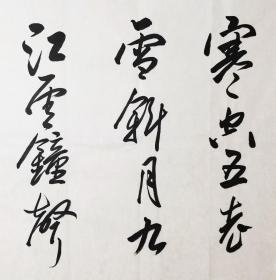 寒空五老
雪斜月九
江雲鐘聲